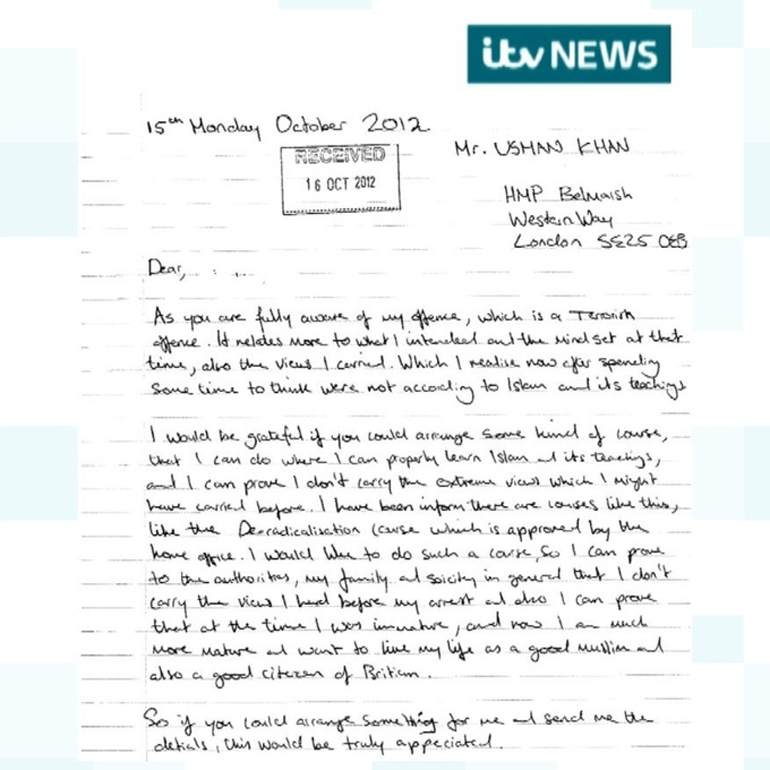 itv NEWS
15th Monday October 2012
Mr. USMAN KHAN
RECEIVED
16 OCT 2012
HMP Belmarsh
Western Way
London SE25 OEB
Dear,
As you are fully aware of my offence, which is a Terrorism
offence. It relates more to what I intended and the mind set at that
time, also the views I carried. Which I realise now after spending
some time to think were not according to Islam and its teachings
I would be grateful if you could arrange some kind of course,
that I can do where I can properly learn Islam and its teachings,
and I can prove I don't carry the extreme views which I might
have carried before. I have been inform there are courses like this,
like the De-radicalisation course which is approved by the
home office. I would like to do such a course, So I can prove
to the authorities, my family and soicity in general that I don't
carry the views I had before my arrest and also I can prove
that at the time I was immature, and now I am much
more mature and want to live my life as a good muslim and
also a good citezen of Britian.
So if you could arrange something for me and send me the
detials, this would be truly appeciated.